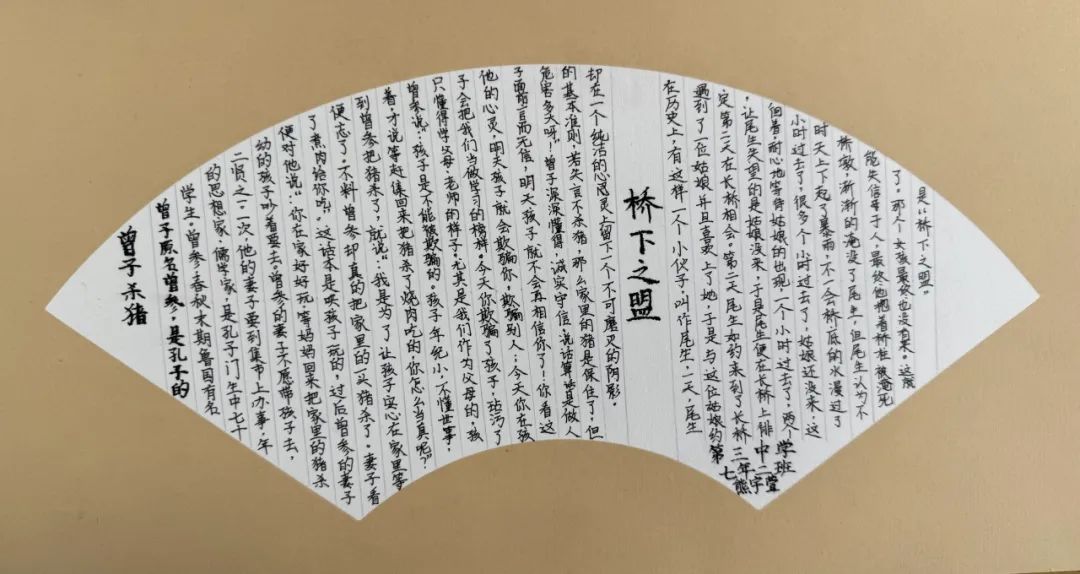 曾子杀猪
曾子原名曾参，是孔子的
学生。曾参，春秋末期鲁国有名
的思想家、儒学家，是孔子门生中七十
二贤之一。一次，他的妻子要到集市上办事，年
幼的孩子吵着要去。曾参的妻子不愿带孩子去，
便对他说：“你在家好好玩，等妈妈回来把家里的猪杀
了煮肉给你吃。”这话本是哄孩子玩的，过后曾参的妻子
便忘了。不料曾参却真的把家里的一头猪杀了。妻子看
到曾参把猪杀了，就说：“我是为了让孩子安心在家里等
着，才说等赶集回来把猪杀了烧肉吃的，你怎么当真呢？”
曾参说：“孩子是不能欺骗的。孩子年纪小，不懂世事，
只懂得学父母、老师的样子。尤其是我们作为父母的，孩
子会把我们当做学习的榜样。今天你欺骗了孩子，玷污了
他的心灵，明天孩子就会欺骗你，欺骗别人；今天你在孩
子面前言而无信，明天孩子就不会再相信你了！你看这
危害多大呀！”曾子深深懂得，诚实守信，说话算算是做人
的基本准则，若失言不杀猪，那么家里的猪是保住了，但
却在一个纯洁的心灵上留下一个不可磨灭的阴影。
桥下之盟
在历史上，有这样一个小伙子，叫作尾生，一天，尾生
遇到了一位姑娘并且喜欢上了她，于是与这位姑娘约
定第二天在长桥相会。第二天尾生如约来到了长桥
，让尾生失望的是姑娘没来，于是尾生便在长桥上徘
徊着，耐心地等待姑娘的出现，一个小时过去了，两个
小时过去了，很多个小时过去了，姑娘还没来，这
时天上下起了暴雨，不一会桥低的水漫过了
桥墩，渐渐的淹没了尾生，但尾生认为不
能失信等于人，最终他抱着桥柱被淹死
了。那个女孩最终也没有来。这就
是“桥下之盟”。
第三中学
七年二班
熊宇萱